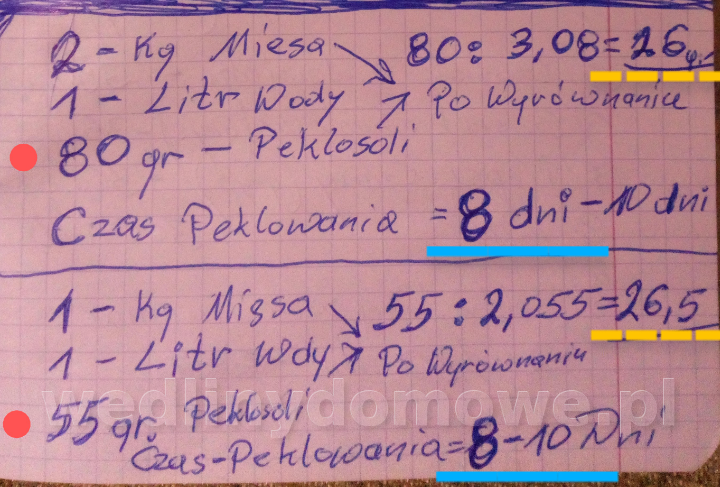 2 - Kg Miesa 80: 3,08 = 26
1 - Litr Wody Po Wyrównaniu
80 gr - Peklosoli
Czas Peklowania = 8 dni - 10 dni
1 - Kg Mięsa 55 : 2,055 = 26,5
1 - Litr Wdy Po Wyrównaniu
wedlinydomowe.pl
55 gr. Peklosoli
Czas-Peklowania = 8 - 10 Dni